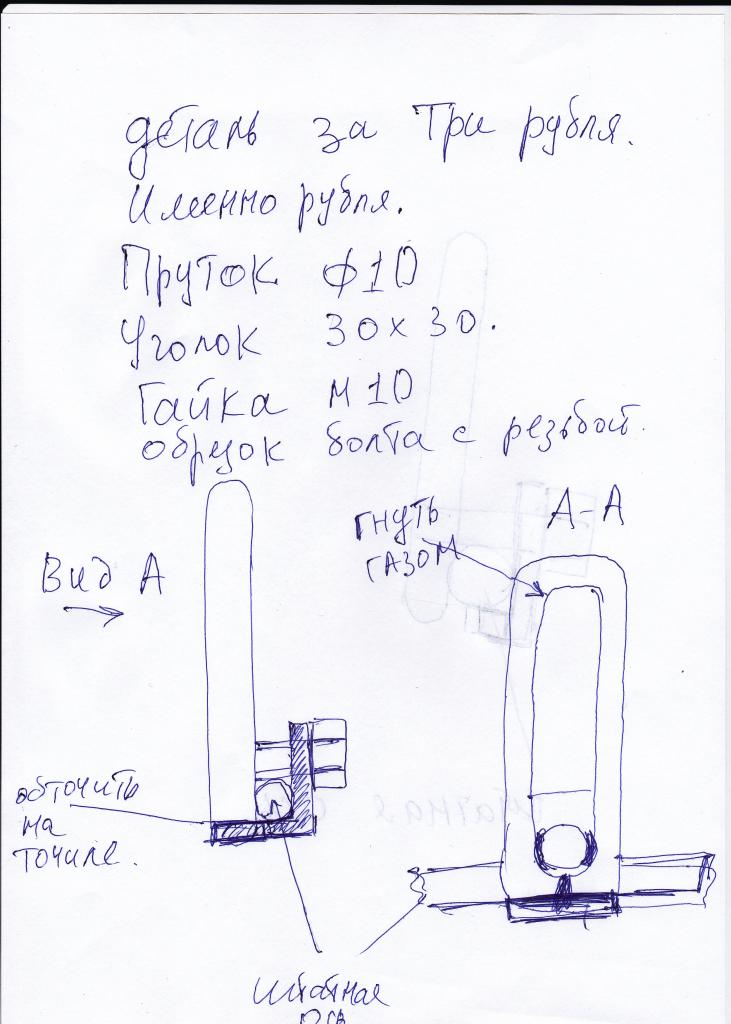 деталь за Три рубля.
Именно рубля.
Пруток ф10
Уголок 30х30.
Гайка М10
обрезок болта с резьбой.
Вид А
гнуть
газом
А-А
обточить
на
точиле.
штатная